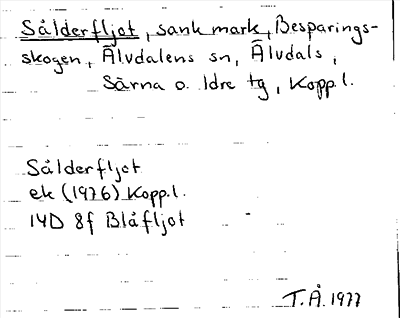 Sålderfljot, sank mark, Besparings-
skogen, Älvdalens sn, Älvdals,
Särna o. Idre tg, Kopp.l.
Sålderfljot
ek (1976) Kopp.l.
14D 8f Blåfljot
T.Å. 1977